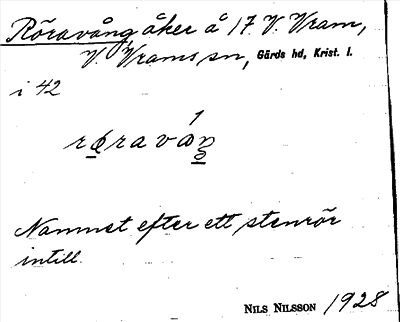 Röravång, åker å 17 V. Vram,
V. Vrams sn, Gärds hd, Krist. l.
i 42
Namnet efter ett stenrör
intill.
NILS NILSSON 1928